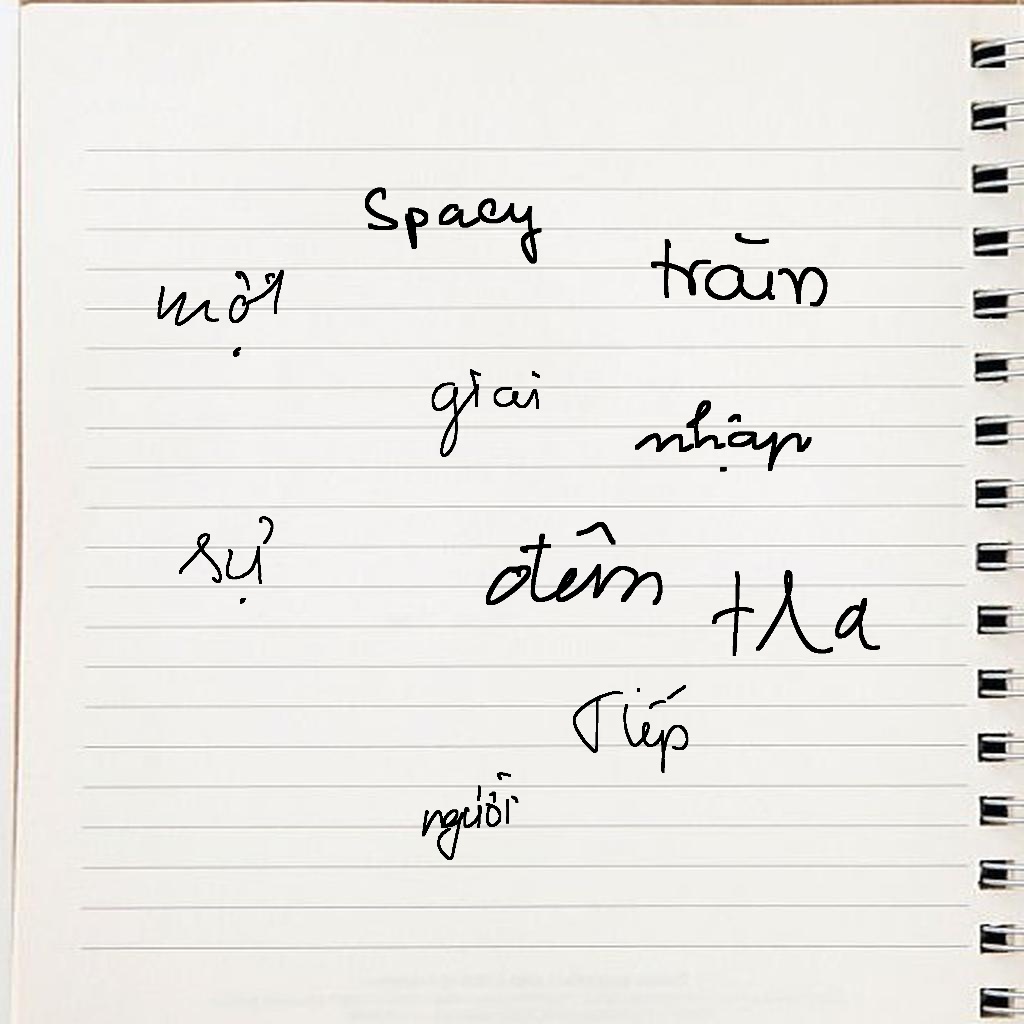 Spacy
tràn
một
giai
nhập
sự
đêm
tha
Tiếp
người